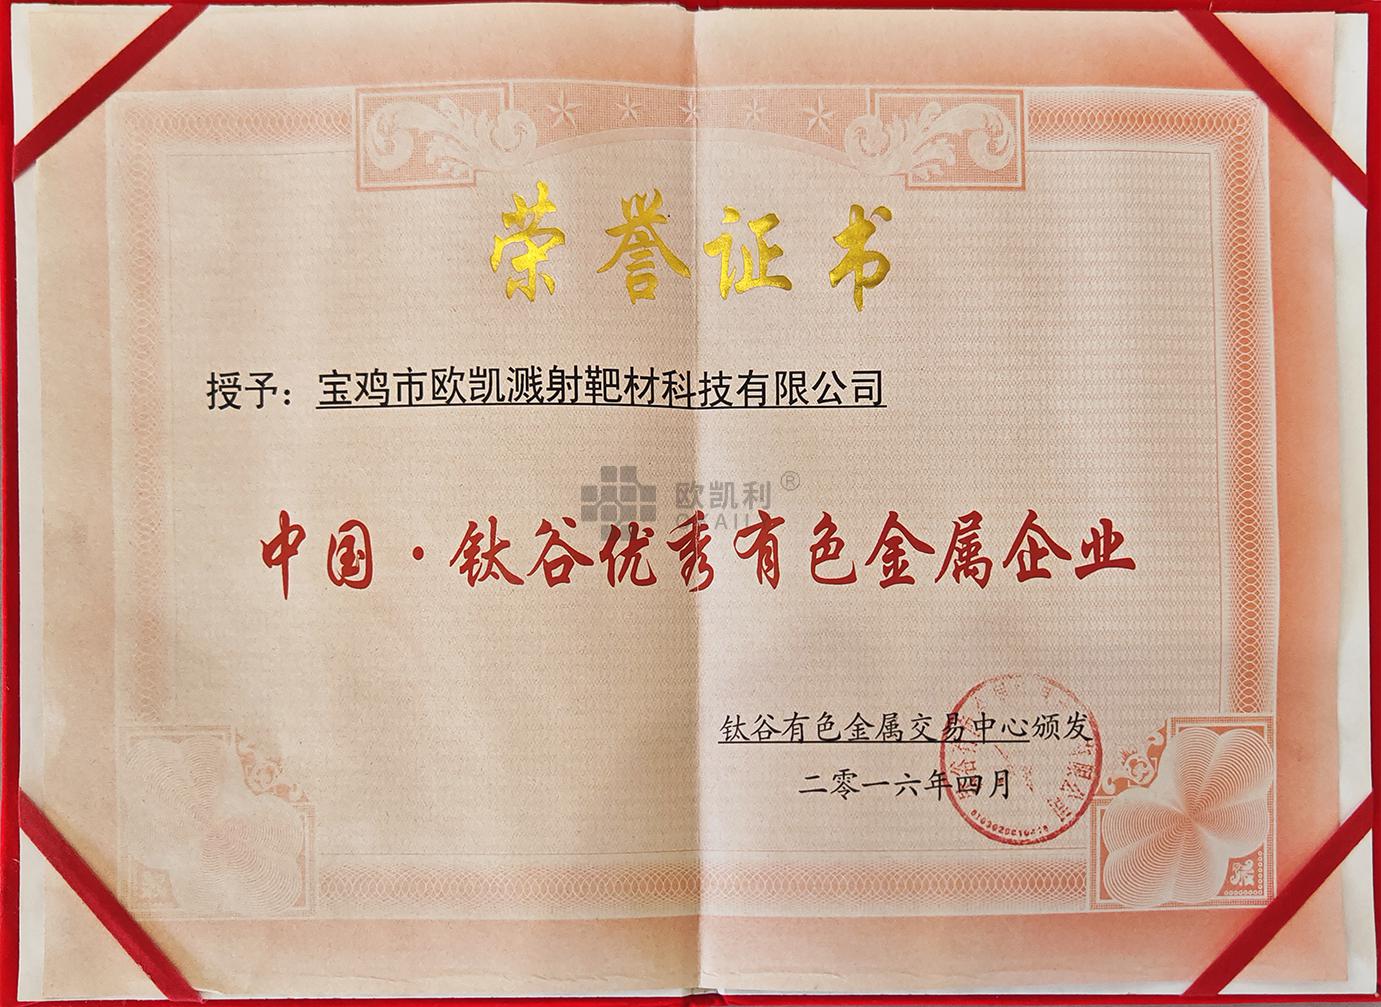 荣誉证书
授予：宝鸡市欧凯溅射靶材科技有限公司
欧凯利®
OKAILI
中国·钛谷优秀有色金属企业
钛谷有色金属交易中心颁发
二零一六年四月